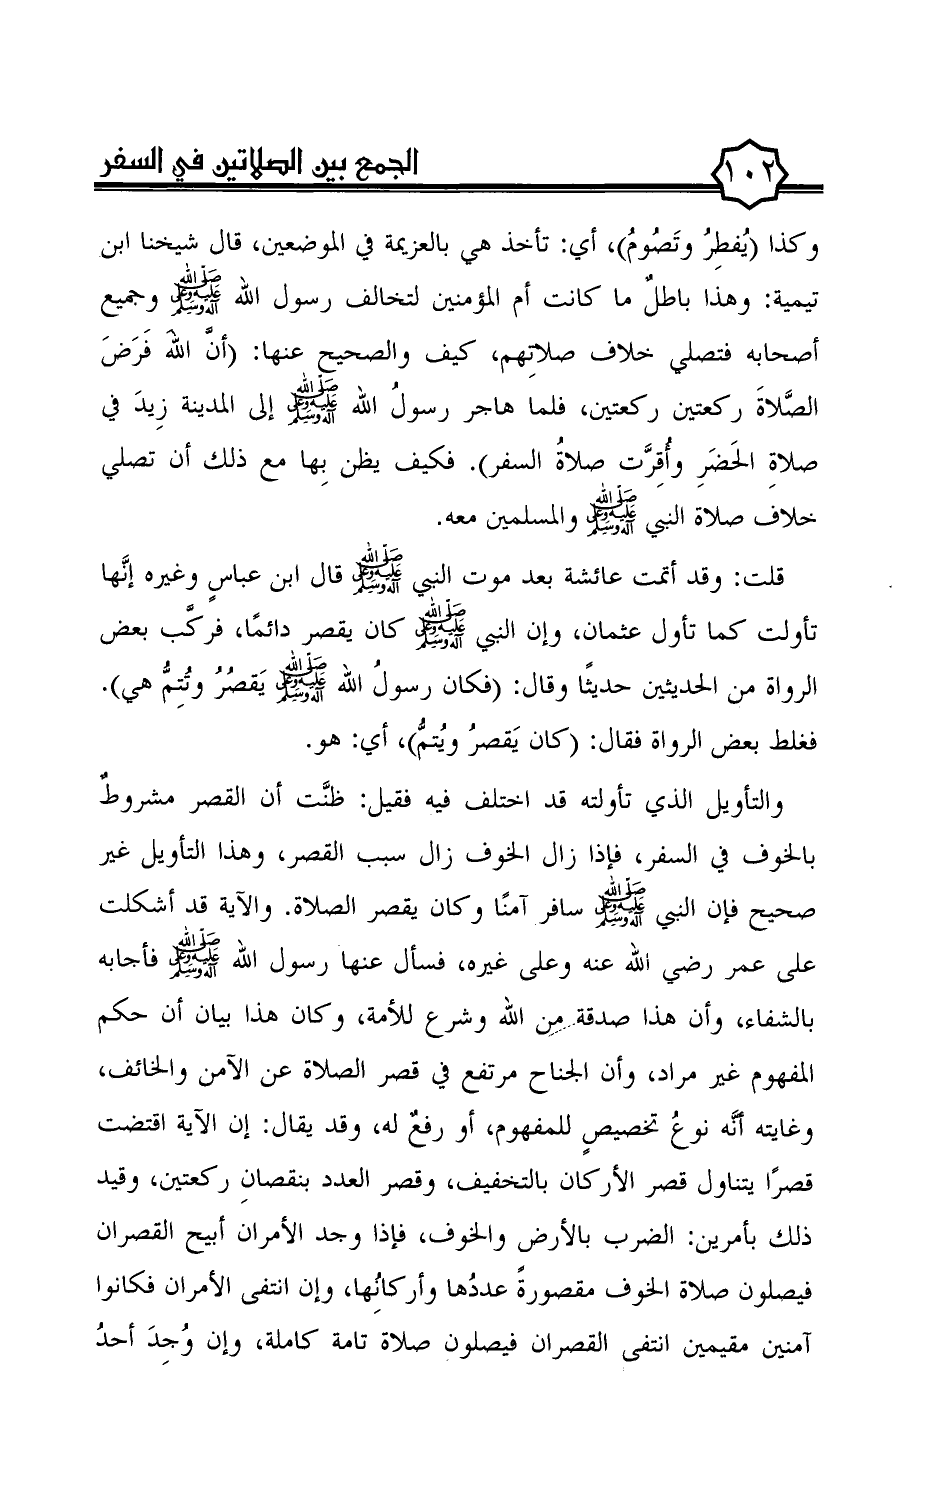 الجمع بين الصلاتين في السفر ١٠٢
وكذا (يُفطِرُ وتَصُومُ)، أي: تأخذ هي بالعزيمة في الموضعين، قال شيخنا ابن
تيمية: وهذا باطلٌ ما كانت أم المؤمنين لتخالف رسول الله ﷺ وجميع
أصحابه فتصلي خلاف صلاتهم، كيف والصحيح عنها: (أنَّ اللهَ فَرَضَ
الصَّلاةَ ركعتين ركعتين، فلما هاجر رسولُ الله ﷺ إلى المدينة زِيدَ في
صلاةِ الحَضَرِ وأُقِرَّت صلاةُ السفر). فكيف يظن بها مع ذلك أن تصلي
خلاف صلاة النبي ﷺ والمسلمين معه.
قلت: وقد أتمت عائشة بعد موت النبي ﷺ قال ابن عباسٍ وغيره إنَّها
تأولت كما تأول عثمان، وإن النبي ﷺ كان يقصر دائمًا، فركَّب بعض
الرواة من الحديثين حديثًا وقال: (فكان رسولُ الله ﷺ يَقصُرُ وتُتِمُّ هي).
فغلط بعض الرواة فقال: (كان يَقصرُ ويُتمُّ)، أي: هو.
والتأويل الذي تأولته قد اختلف فيه فقيل: ظنَّت أن القصر مشروطٌ
بالخوف في السفر، فإذا زال الخوف زال سبب القصر، وهذا التأويل غير
صحيح فإن النبي ﷺ سافر آمنًا وكان يقصر الصلاة. والآية قد أشكلت
على عمر رضي الله عنه وعلى غيره، فسأل عنها رسول الله ﷺ فأجابه
بالشفاء، وأن هذا صدقة من الله وشرع للأمة، وكان هذا بيان أن حكم
المفهوم غير مراد، وأن الجناح مرتفع في قصر الصلاة عن الآمن والخائف،
وغايته أنَّه نوعُ تخصيصٍ للمفهوم، أو رفعٌ له، وقد يقال: إن الآية اقتضت
قصرًا يتناول قصر الأركان بالتخفيف، وقصر العدد بنقصانِ ركعتين، وقيد
ذلك بأمرين: الضرب بالأرض والخوف، فإذا وجد الأمران أبيح القصران
فيصلون صلاة الخوف مقصورةً عددُها وأركانُها، وإن انتفى الأمران فكانوا
آمنين مقيمين انتفى القصران فيصلون صلاة تامة كاملة، وإن وُجِدَ أحدُ